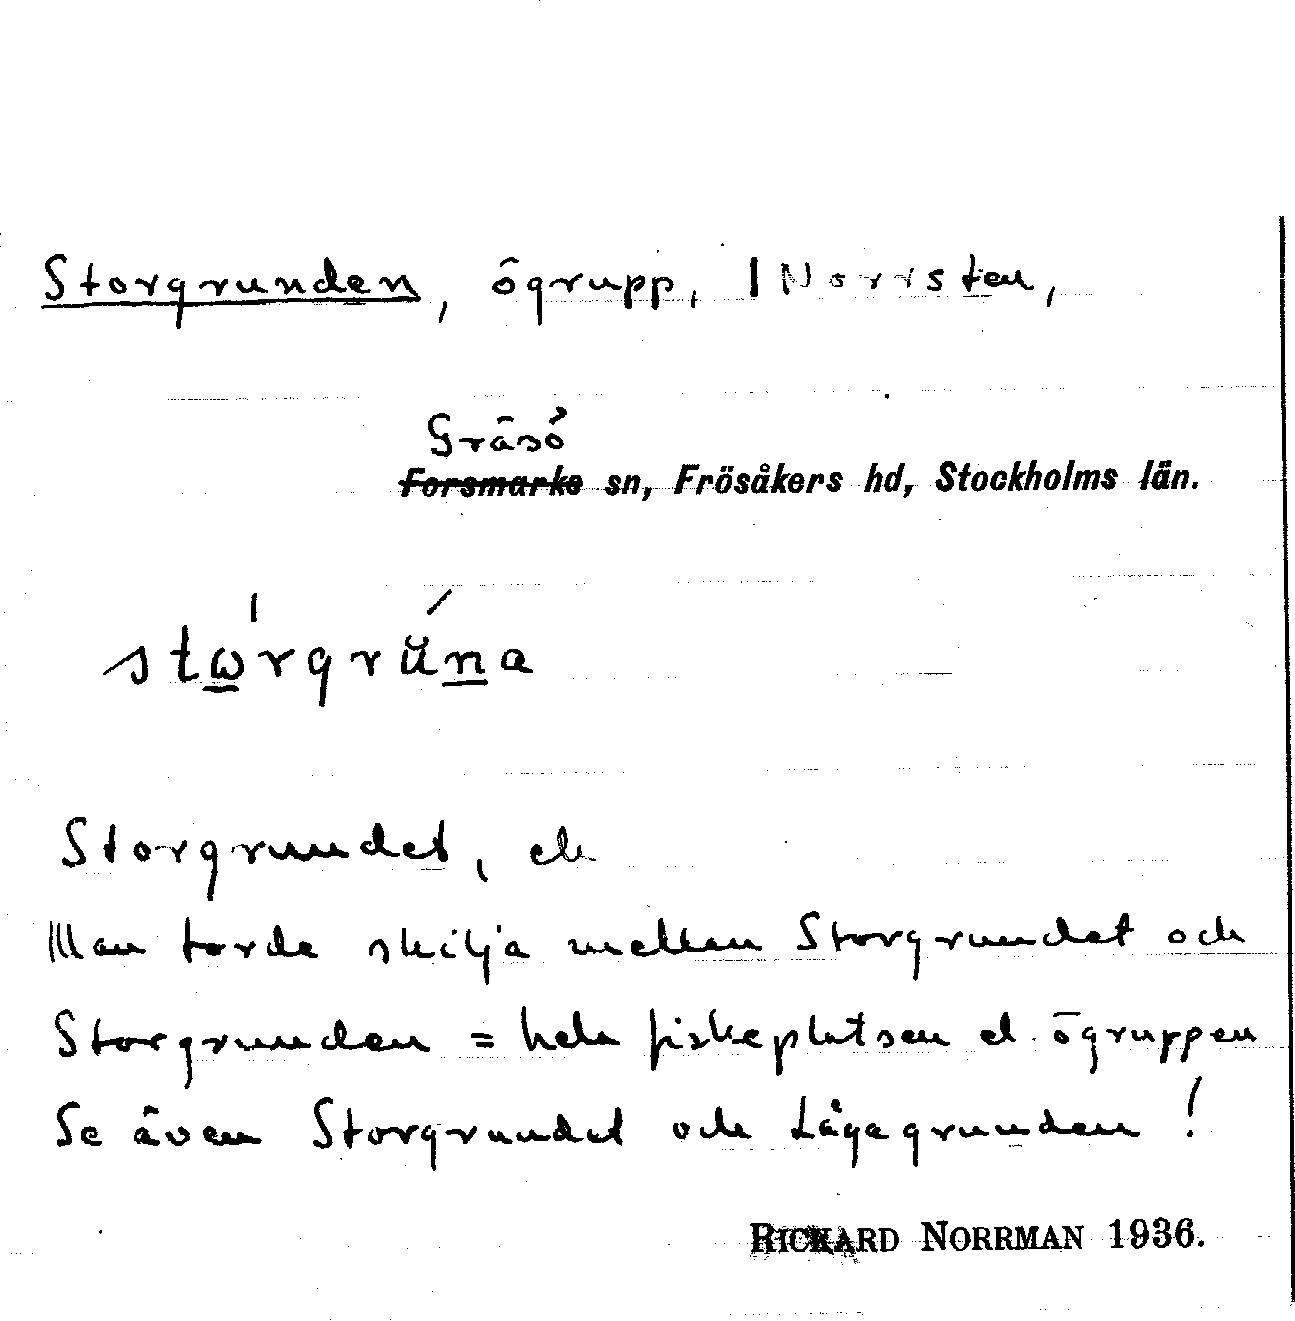 Storgrunden, ögrupp, | Norrsten,
Gräsö
Forsmarks sn, Frösåkers hd, Stockholms län.
stώ̲rgrŭ́n̲a
Storgrundet, ek
Man torde skilja mellan Storgrundet och
Storgrunden = hela fiskeplatsen el. ögruppen
Se även Storgrundet och Lågagrunden !
RICKARD NORRMAN 1936.